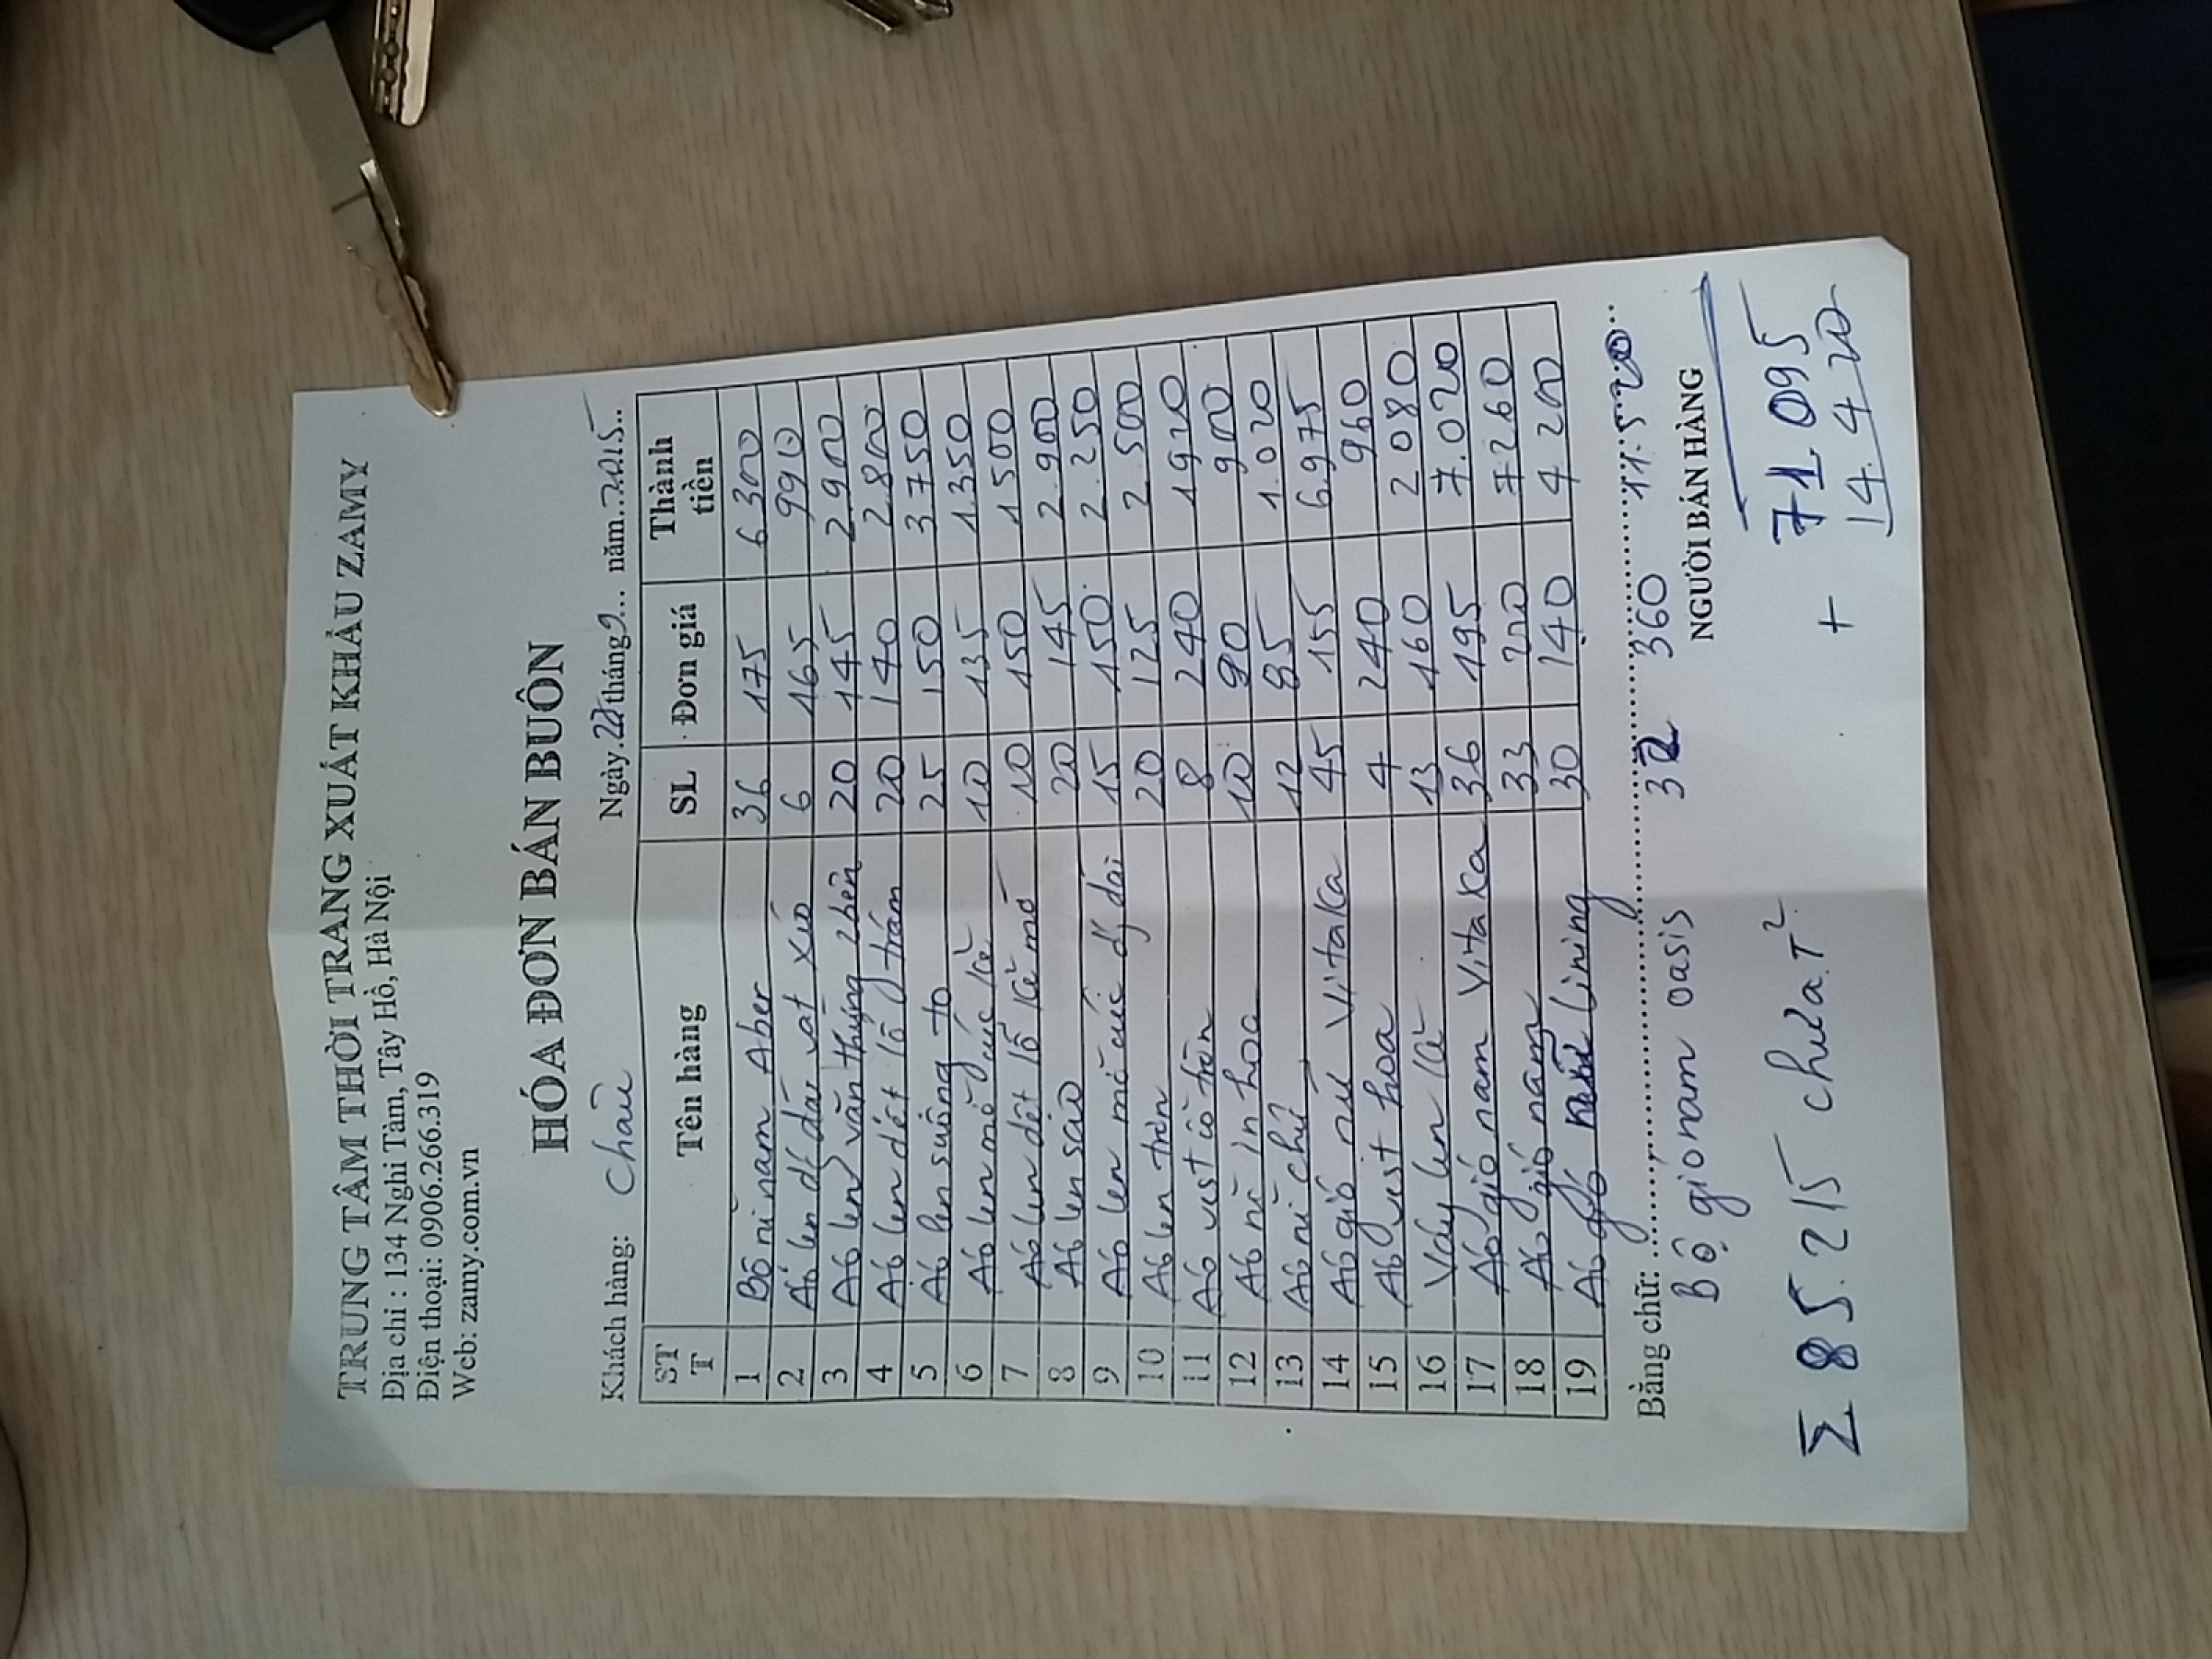 TRUNG TÂM THỜI TRANG XUẤT KHẨU ZAMY
Địa chỉ : 134 Nghi Tàm, Tây Hồ, Hà Nội
Điện thoại: 0906.266.319
Web: zamy.com.vn
HÓA ĐƠN BÁN BUÔN
Ngày 22 tháng 9 năm 2015
Khách hàng: Châu
STT Tên hàng SL Đơn giá Thành tiền
1 Bộ nỉ nam Aber 36 175 6300
2 Áo len dệ dài vạt xéo 6 165 990
3 Áo len vặn thừng 2 bên 20 145 2.900
4 Áo len dệt lỗ trám 20 140 2.800
5 Áo len suông to 25 150 3750
6 Áo len mở cúc kè 10 135 1350
7 Áo len dệt lỗ kè mở 10 150 1500
8 Áo len sao 20 145 2.900
9 Áo len mở cúc dy dài 15 150 2.250
10 Áo len tròn 20 125 2.500
11 Áo vest cổ tròn 8 240 1920
12 Áo nỉ in hoa 10 90 900
13 Áo nỉ chữ 12 85 1.020
14 Áo gió nữ Vitaka 45 155 6.975
15 Áo vest hoa 4 240 960
16 Váy len kè 13 160 2080
17 Áo gió nam Vitaka 36 195 7.020
18 Áo gió nam 33 220 7260
19 Áo gió Lining 30 140 4200
Bằng chữ: 32 360 11.520
Bộ gió nam oasis
NGƯỜI BÁN HÀNG
71.095
+ 14.420
Σ 85.215 chưa T²